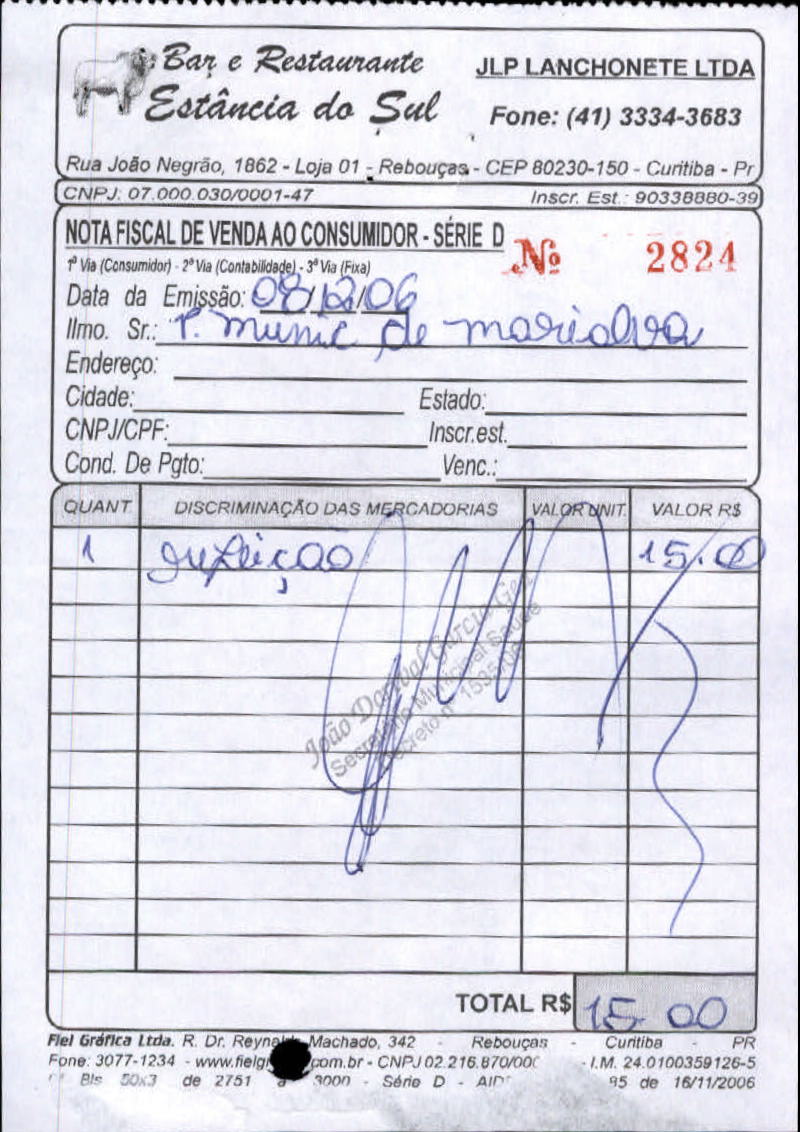 Bar e Restaurante
Estância do Sul
JLP LANCHONETE LTDA
Fone: (41) 3334-3683
Rua João Negrão, 1862 - Loja 01 - Rebouças - CEP 80230-150 - Curitiba - Pr
CNPJ: 07.000.030/0001-47 Inscr. Est.: 90338880-39
NOTA FISCAL DE VENDA AO CONSUMIDOR - SÉRIE D
Nº 2824
1ª Via (Consumidor) - 2ª Via (Contabilidade) - 3ª Via (Fixa)
Data da Emissão: 08/12/06
Ilmo. Sr.: P. munic de marialva
Endereço:
Cidade: Estado:
CNPJ/CPF: Inscr.est.
Cond. De Pgto: Venc.:
QUANT. DISCRIMINAÇÃO DAS MERCADORIAS VALOR UNIT. VALOR R$
1 refeição 15.00
João Dorival Garcia
Secretário Municipal Saúde
Decreto nº 1535/06
TOTAL R$ 15.00
Fiel Gráfica Ltda. R. Dr. Machado, 342 - Rebouças - Curitiba - PR
Fone: 3077-1234 - www.fielg com.br - CNPJ 02.216.870/000 - I.M. 24.0100359126-5
Bls 50x3 de 2751 a 3000 - Série D - AID 95 de 16/11/2006